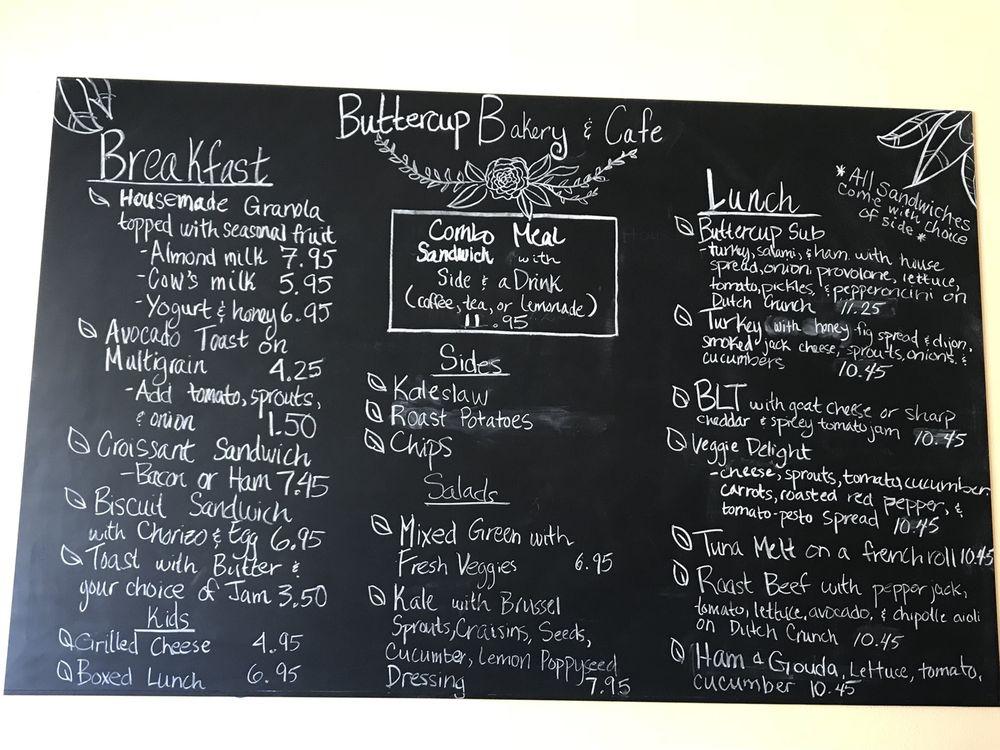 Buttercup Bakery & Cafe
Breakfast
Housemade Granola
topped with seasonal fruit
-Almond milk 7.95
-Cow's milk 5.95
-Yogurt & honey 6.95
Avocado Toast on
Multigrain 4.25
-Add tomato, sprouts,
& onion 1.50
Croissant Sandwich
-Bacon or Ham 7.45
Biscuit Sandwich
with Chorizo & Egg 6.95
Toast with Butter &
your choice of Jam 3.50
Kids
Grilled Cheese 4.95
Boxed Lunch 6.95
Combo Meal
Sandwich with
Side & a Drink
(coffee, tea, or lemonade)
11.95
Sides
Kaleslaw
Roast Potatoes
Chips
Salads
Mixed Green with
Fresh Veggies 6.95
Kale with Brussel
Sprouts, Craisins, Seeds,
Cucumber, Lemon Poppyseed
Dressing 7.95
Lunch
*All Sandwiches
come with choice
of side*
Buttercup Sub
-turkey, salami, & ham with house
spread, onion, provolone, lettuce,
tomato, pickles, & pepperoncini on
Dutch Crunch 11.25
Turkey with honey fig spread & dijon,
smoked jack cheese, sprouts, onions, &
cucumbers 10.45
BLT with goat cheese or sharp
cheddar & spicey tomato jam 10.45
Veggie Delight
-cheese, sprouts, tomato, cucumber,
carrots, roasted red pepper, &
tomato-pesto spread 10.45
Tuna Melt on a french roll 10.45
Roast Beef with pepper jack,
tomato, lettuce, avocado, & chipotle aioli
on Dutch Crunch 10.45
Ham & Gouda, Lettuce, tomato,
cucumber 10.45